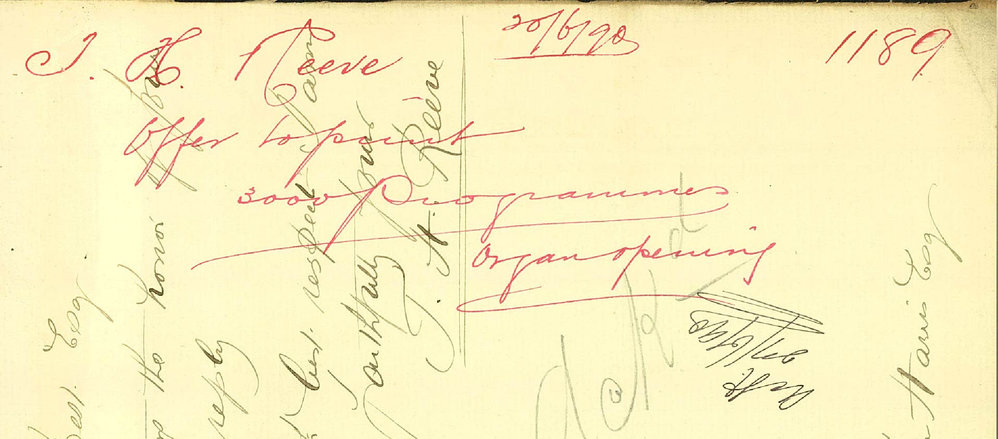 J. H. Reeve
20/6/90
1189
Offer to print
3000 Programmes
Organ opening
Esq
the honor
reply
best respect
faithfully yours
J. H. Reeve
27/6/90
Harris Esq